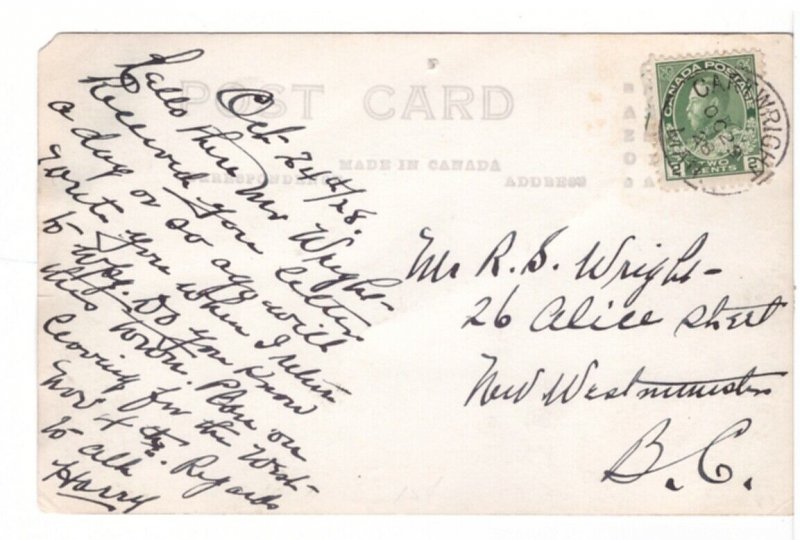 POST CARD
MADE IN CANADA
CORRESPONDENCE
ADDRESS
CANADA POSTAGE
2 TWO 2
CENTS
Oct 24th/28.
Hallo there Mr Wright
Received your letter
a day or so ago will
write you when I return
to Wpg. Do you know
this town. Plan on
leaving for the West
Nov 4. Regards
to all
Harry
Mr R. S. Wright
26 Alice Street
New Westminster
B.C.